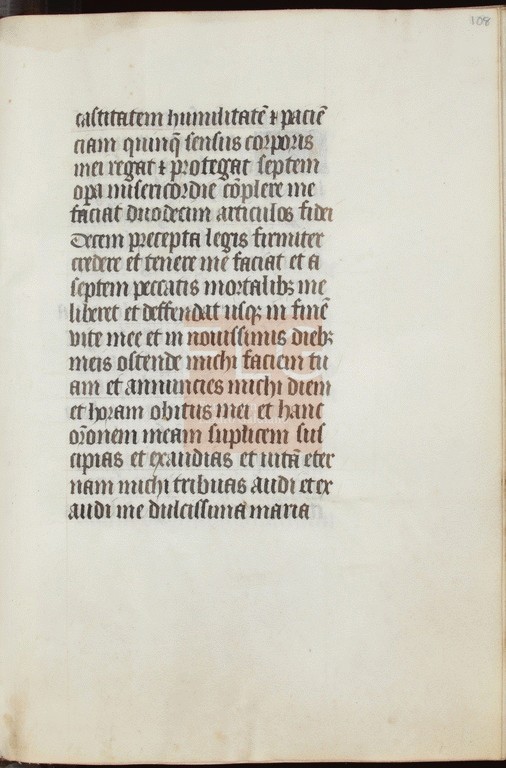 108
castitatem humilitatē ⁊ paciē
ciam quinq̄ sensus corporis
mei regat ⁊ protegat septem
opa misericordie cōplere me
faciat duodecim articulos fidei
Decem precepta legis firmiter
credere et tenere me faciat et a
septem peccatis mortalibꝫ me
liberet et deffendat usqꝫ in finē
vite mee et in nouissimis diebꝫ
meis ostende michi faciem tu
am et annuncies michi diem
et horam obitus mei et hanc
orōnem meam suplicem sus
cipias et exaudias et uitā eter
nam michi tribuas audi et ex
audi me dulcissima maria